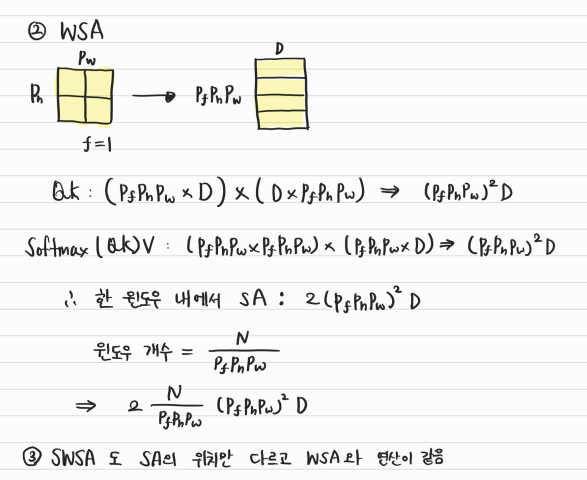 ② WSA
Pw D
Ph → PfPhPw
f=1
Qk : (PfPhPw × D) × (D × PfPhPw) ⇒ (PfPhPw)²D
Softmax(Qk)V : (PfPhPw×PfPhPw) × (PfPhPw×D) ⇒ (PfPhPw)²D
∴ 한 윈도우 내에서 SA : 2(PfPhPw)²D
윈도우 개수 = N / PfPhPw
⇒ 2 N / PfPhPw (PfPhPw)² D
③ SWSA 도 SA의 위치만 다르고 WSA와 연산이 같음